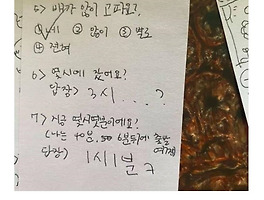 5> 배가 많이 고파요?
①네 ② 많이 ③ 별로
④ 전혀
6> 몇시에 갔어요?
답장> 3시 . . . ?
7> 지금 몇시몇분이에요?
(나는 40분, 50 6분뒤에 출발
답장> 1시 1분 ㅋ